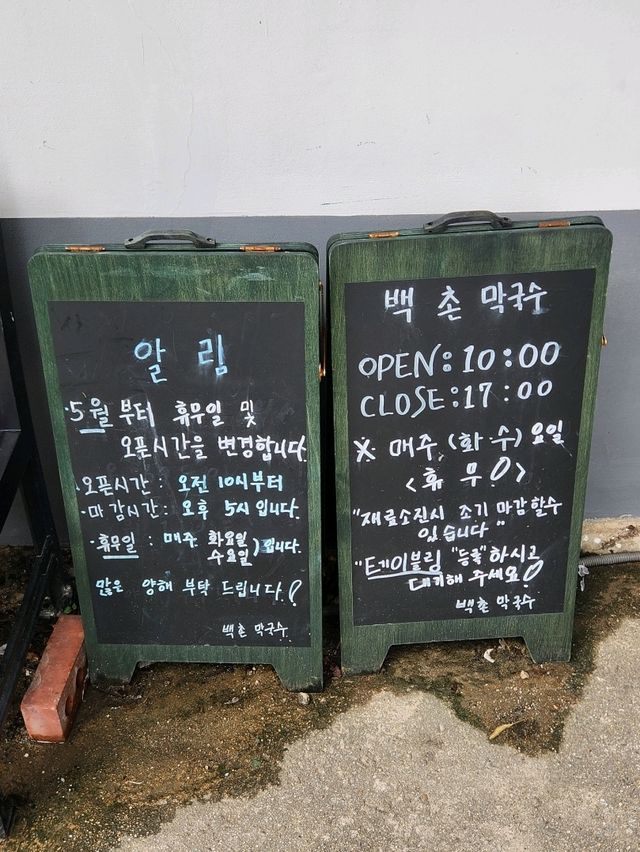 알 림
·5월 부터 휴무일 및
오픈시간을 변경합니다.
·오픈시간 : 오전 10시부터
·마감시간 : 오후 5시 입니다.
·휴무일 : 매주 화요일
수요일 ) 입니다.
많은 양해 부탁 드립니다!
백촌 막국수.
백촌 막국수
OPEN:10:00
CLOSE:17:00
※ 매주 (화 수) 요일
<휴 무>
"재료소진시 조기 마감할수
있습니다"
"테이블링 "등록"하시고
대기해 주세요!
백촌 막국수